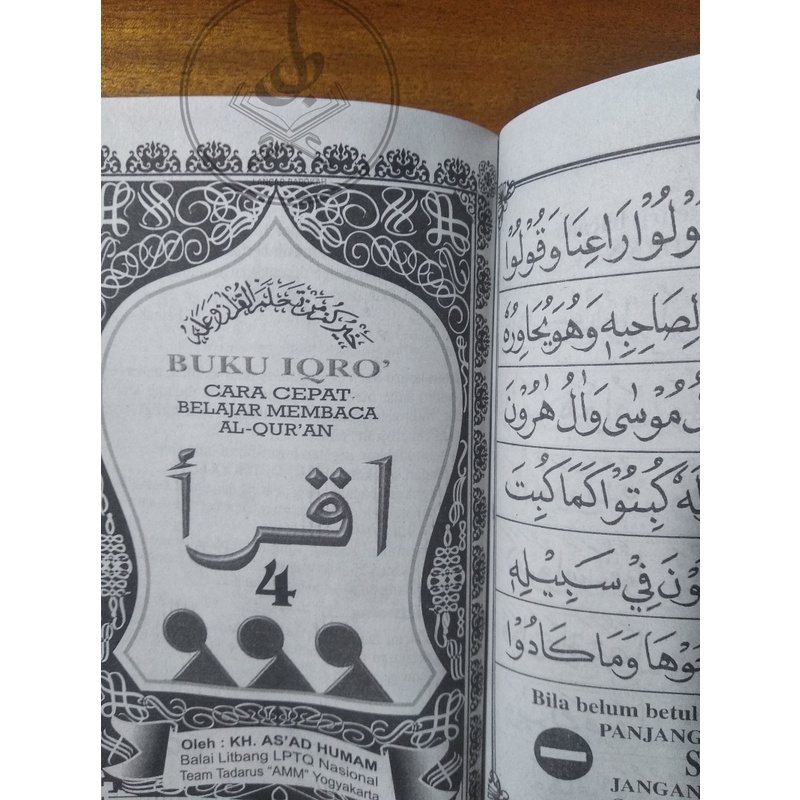 خيركم من تعلم القرآن وعلمه
BUKU IQRO'
CARA CEPAT
BELAJAR MEMBACA
AL-QUR'AN
اقرأ
4
Oleh : KH. AS'AD HUMAM
Balai Litbang LPTQ Nasional
Team Tadarus "AMM" Yogyakarta
رَاعِنَا وَقُولُوْا
لِصَاحِبِهٖ وَهُوَ يُحَاوِرُهٗ
مُوْسٰى وَاٰلُ هٰرُوْنَ
كُبِتُوْا كَمَا كُبِتَ
فِيْ سَبِيْلِهٖ
وَمَا كَادُوْا
Bila belum betul
PANJANG
S
JANGAN